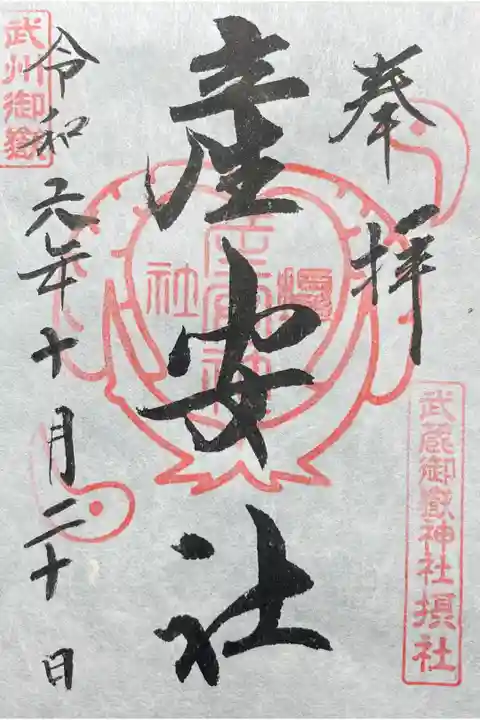 奉拝
武蔵御嶽神社摂社
産安社
産安社
武州御嶽
令和元年十月二十日